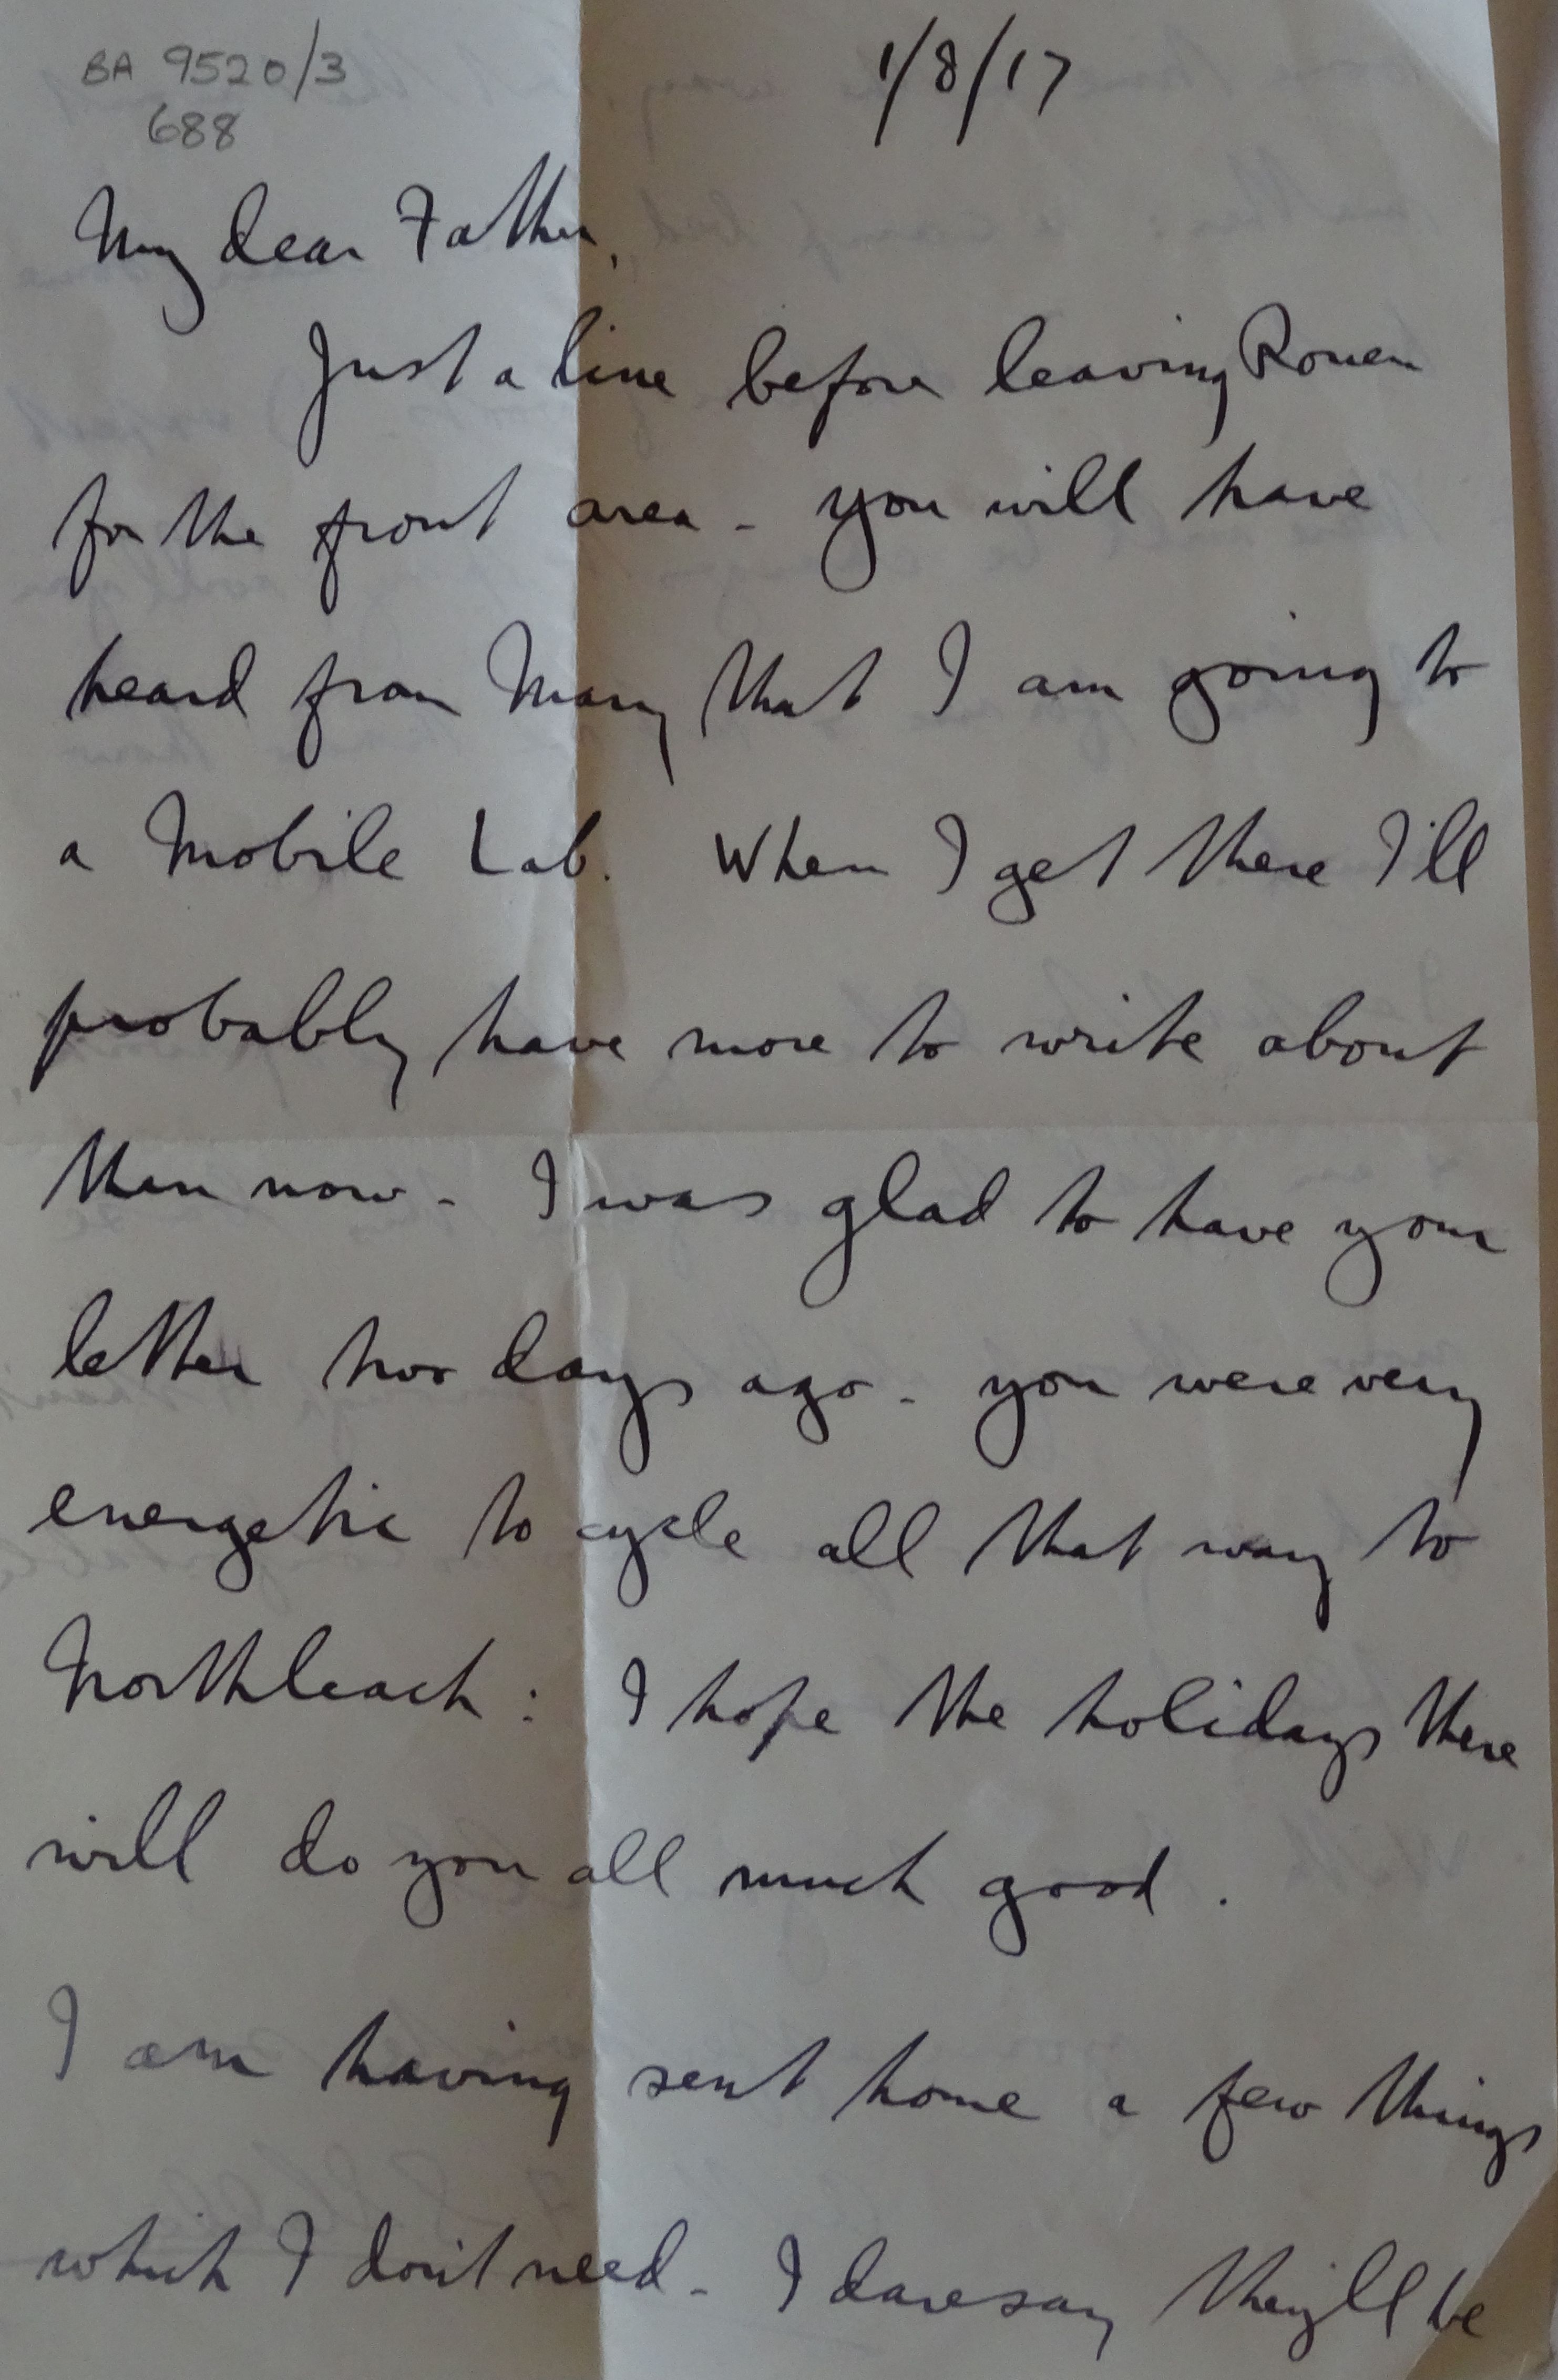 BA 9520/3
688
1/8/17
My dear Father,
Just a line before leaving Rouen
for the front area - you will have
heard from Mary that I am going to
a Mobile Lab. When I get there I'll
probably have more to write about
than now - I was glad to have your
letter two days ago - you were very
energetic to cycle all that way to
Northleach : I hope the holidays there
will do you all much good .
I am having sent home a few things
which I don't need - I daresay they'll be